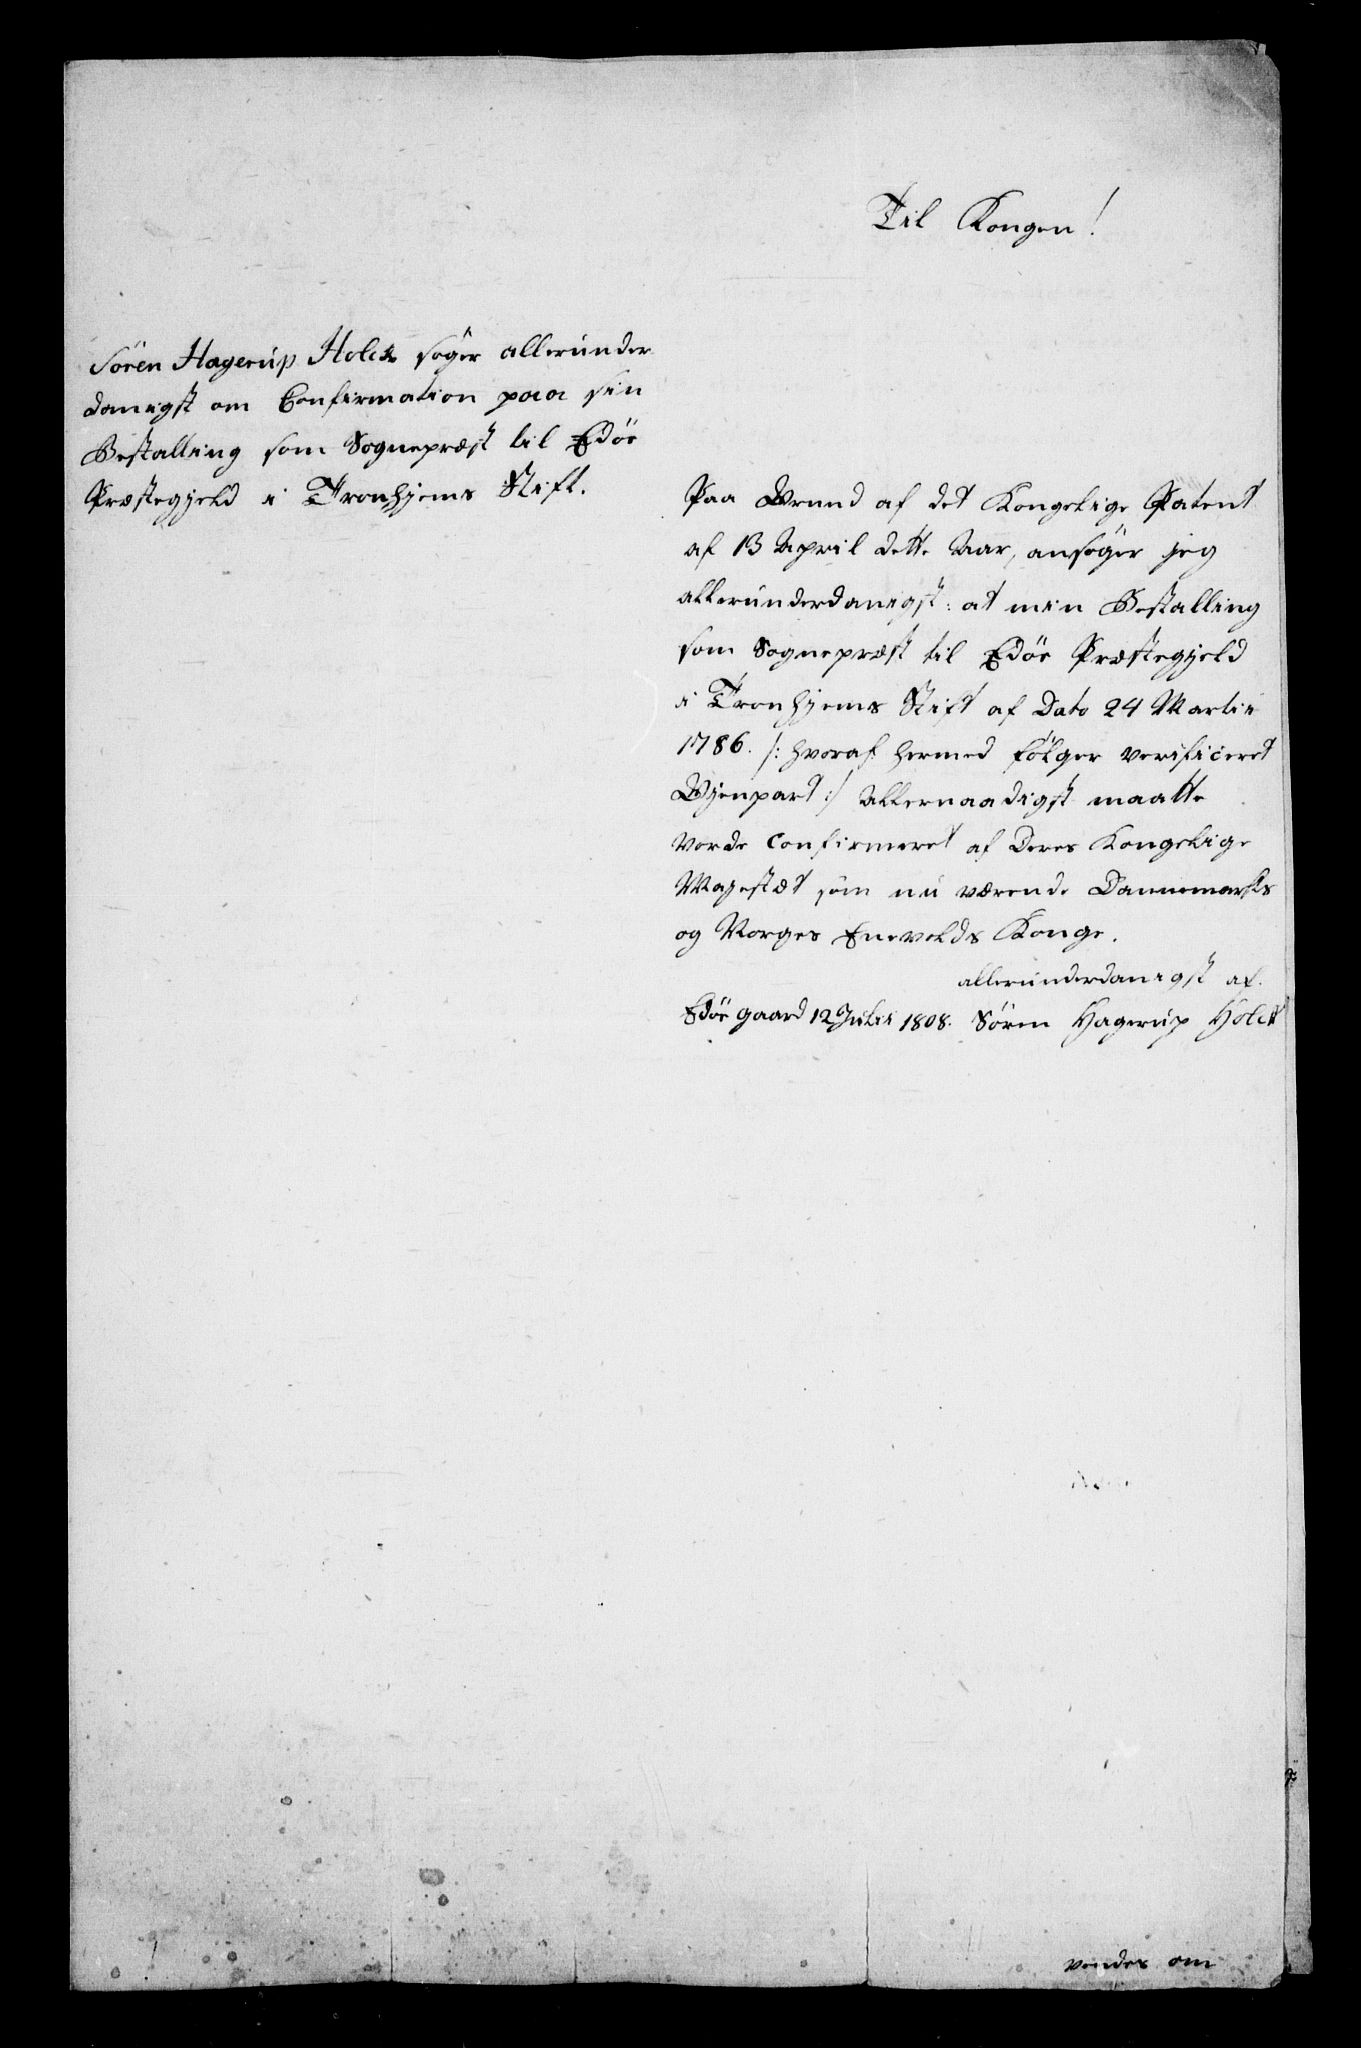 Til Kongen!
Sören Hagerup Holck søger allerunder
danigst om Confirmation paa sin
Bestalling som Sognepræst til Edöe
Præstegjeld i Tronhjems Stift.
Paa Grund af det Kongelige Patent
af 13 April dette Aar, ansöger jeg
allerunderdanigst: at min Bestalling
som Sognepræst til Edöe Præstegjeld
i Tronhjems Stift af Dato 24 Martii
1786. /: hvoraf hermed fölger verificeret
Gjenpart :/ Allernaadigst maatte
vorde confirmeret af Deres Kongelige
Majestæt som nu værende Dannemarks
og Norges Enevolds Konge.
allerunderdanigst af.
Edöe gaard 12 Julii 1808. Sören Hagerup Holck
vendes om